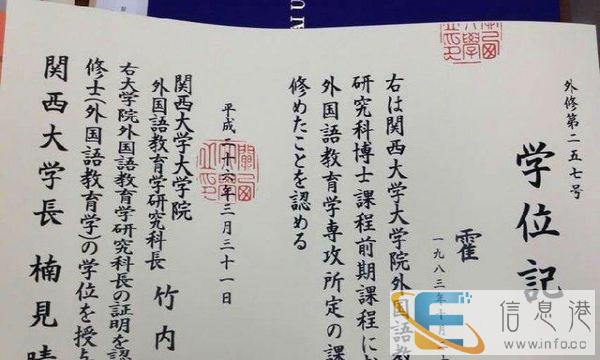 外修第二五七号
学位記
霍
一九八三年十月二
右は関西大学大学院外国語教
研究科博士課程前期課程にお
外国語教育学専攻所定の課
修めたことを認める
平成二十六年三月三十一日
関西大学大学院
外国語教育学研究科長 竹内
右大学院外国語教育学研究科長の証明を認
修士(外国語教育学)の学位を授与
関西大学長 楠見晴
信息港
www.inf0.cc